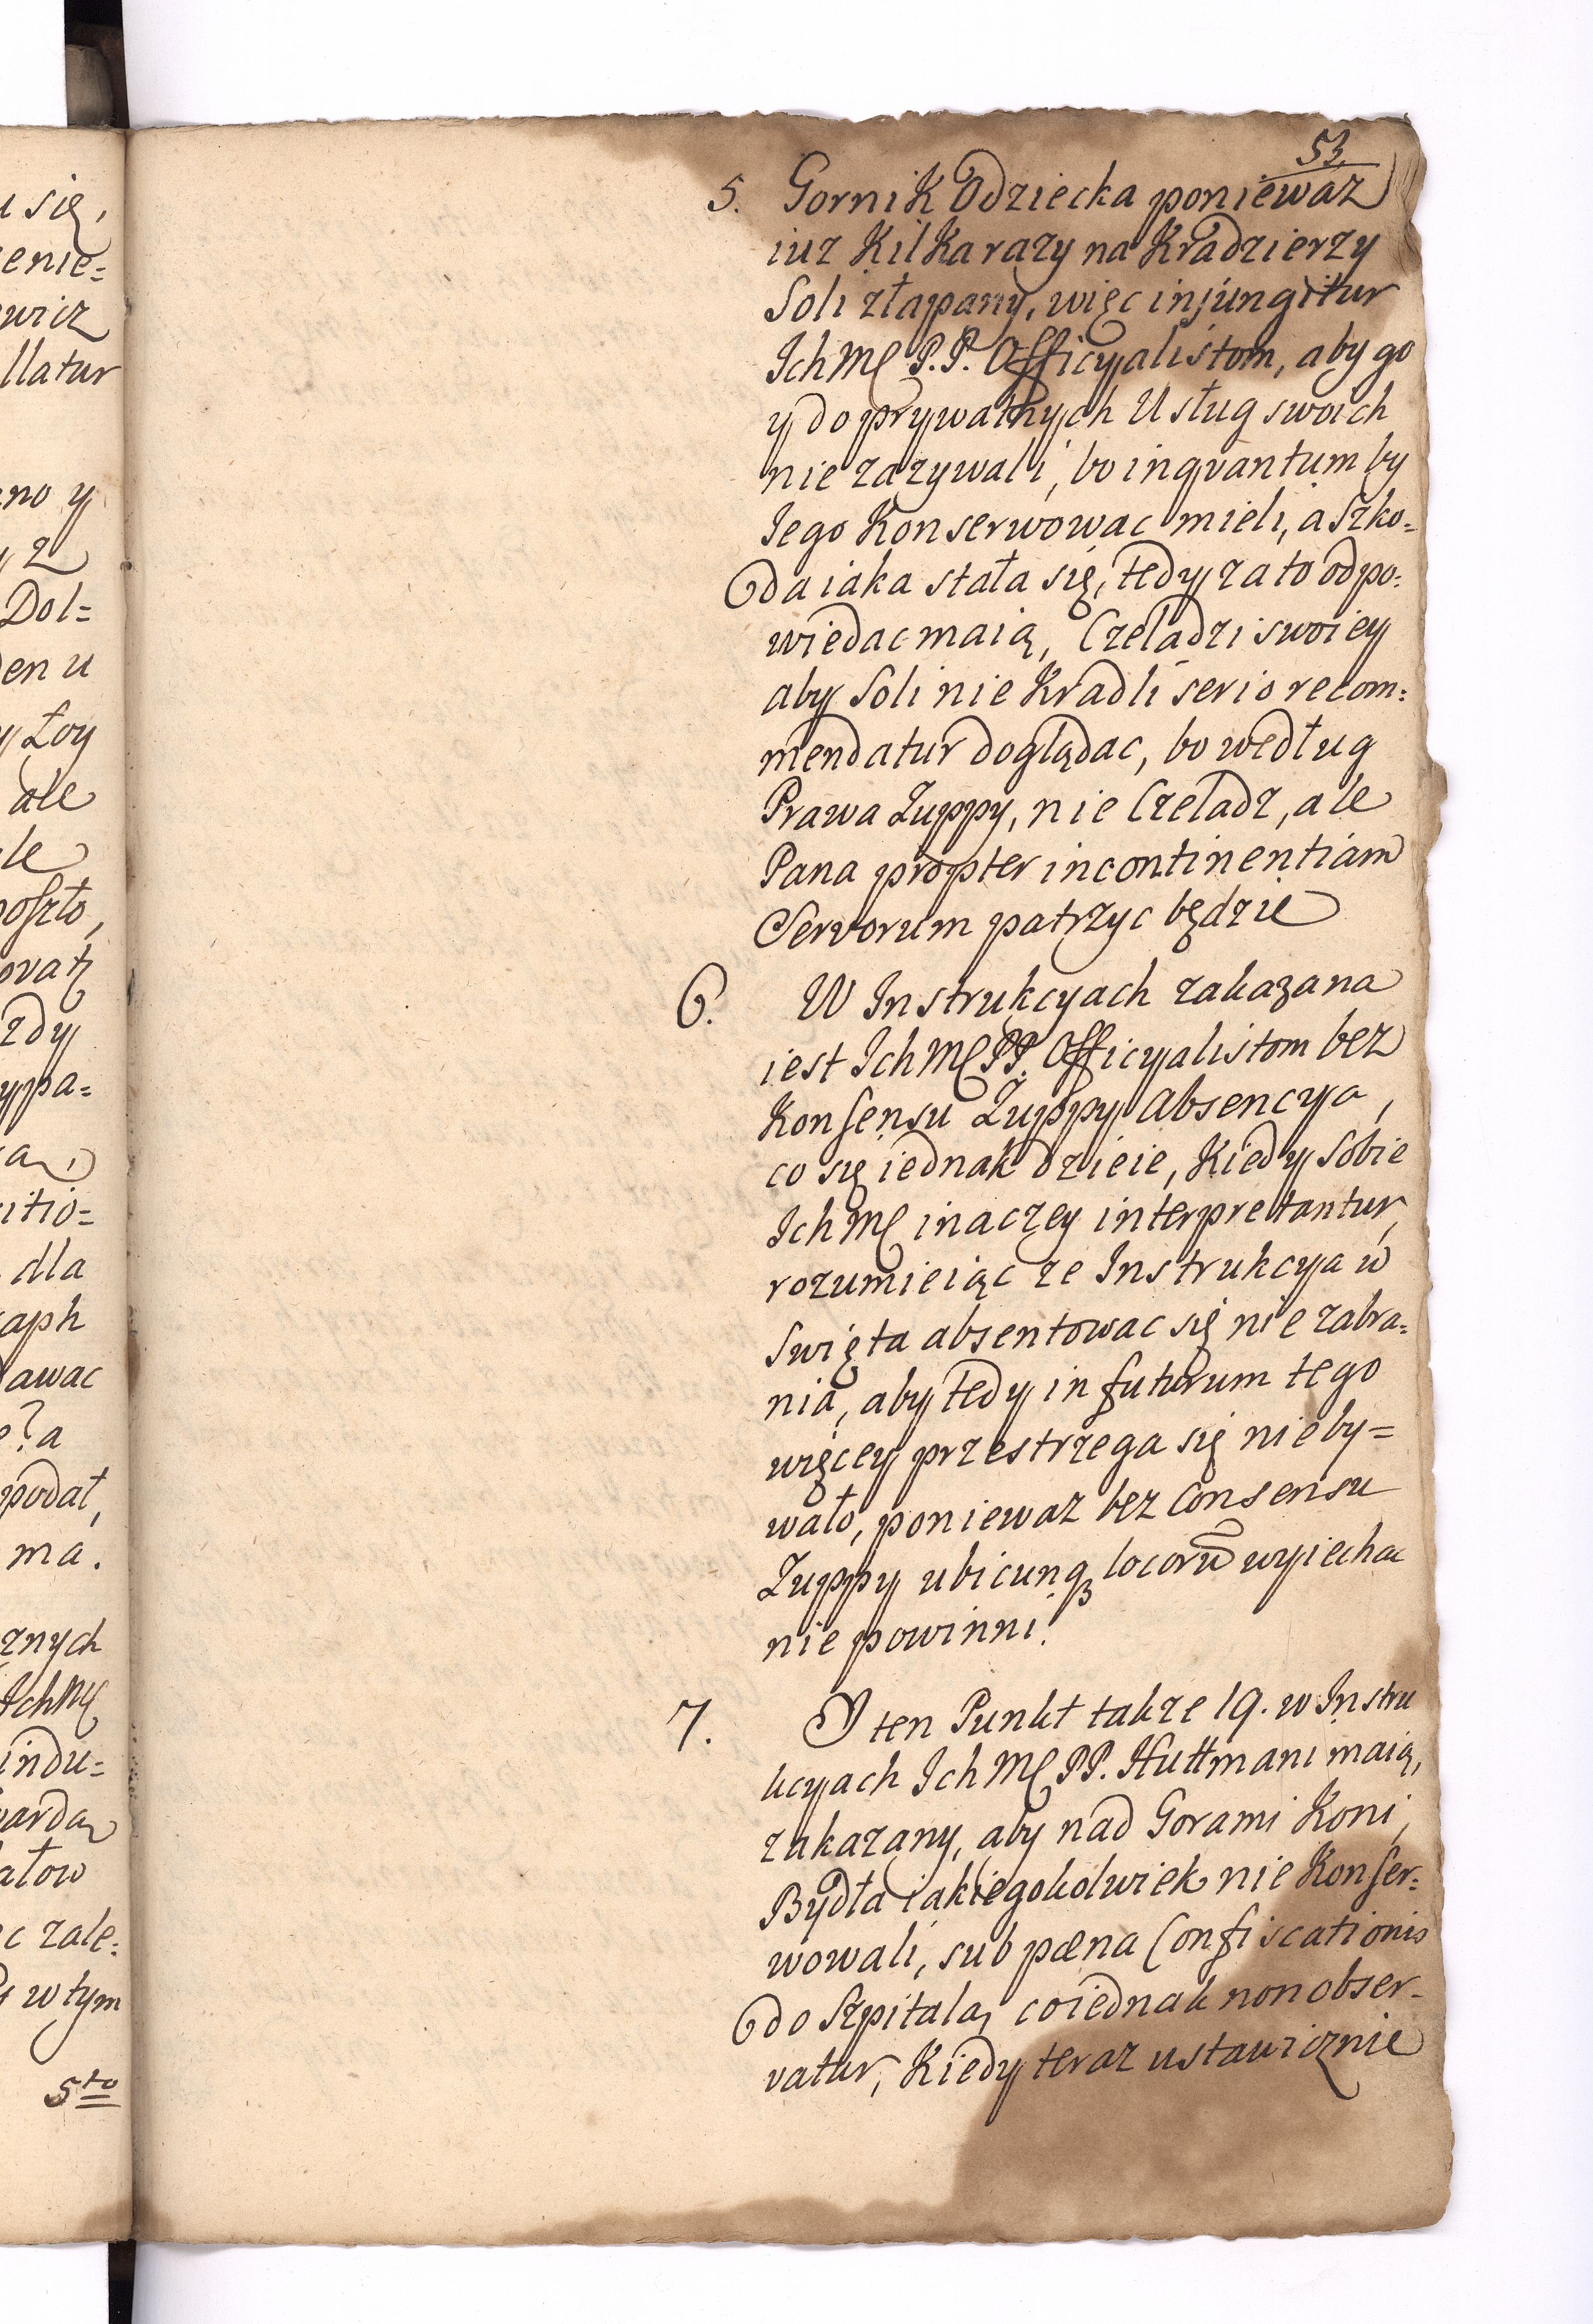 u się,
enie=
wicz
llatur
no y
z
Dol=
en u
y Łoy
ale
le
poszło,
zdy
ypa=
itio=
dla
aph
awac
e? a
podał,
ma.
znych
IchMC
indu=
ardą
ałow
c zale=
w tym
5to
53.
5. Gornik Odziecka poniewaz
iuz Kilka razy na Kradzierzy
Soli złapany, więc injungitur
IchMC P.P. Officyalistom, aby go
y do prywatnych Usług swoich
nie zazywali, bo inqvantum by
Iego Konserwowac mieli, a Szko=
da iaka stała się, tedy za to odpo=
wiedac maią, Czeladzi swoiey
aby Soli nie Kradli serio recom=
mendatur doglądac, bo według
Prawa Zuppy, nie Czeladz, ale
Pana propter incontinentiam
Servorum patrzyc będzie
6. W Instrukcyach zakazana
iest IchMC PP. Officyalistom bez
Konsensu Zuppy Absencya,
co się iednak dzieie, Kiedy Sobie
IchMC inaczey interpretantur,
rozumieiąc ze Instrukcya w
Swięta absentowac się nie zabra=
nia, aby tedy in futurum tego
więcey przestrzega się nie by=
wało, poniewaz bez Consensu
Zuppy ubicunqꝫ locorū wyiechac
nie powinni.
7. I ten Punkt takze 19. w Instru
kcyach IchMC PP. Huttmani maią,
zakazany, aby nad Gorami Koni,
Bydła iakiegokolwiek nie Konser=
wowali, sub pæna Confiscationis
do Szpitala, co iednak non obser=
vatur, Kiedy teraz ustawicznie